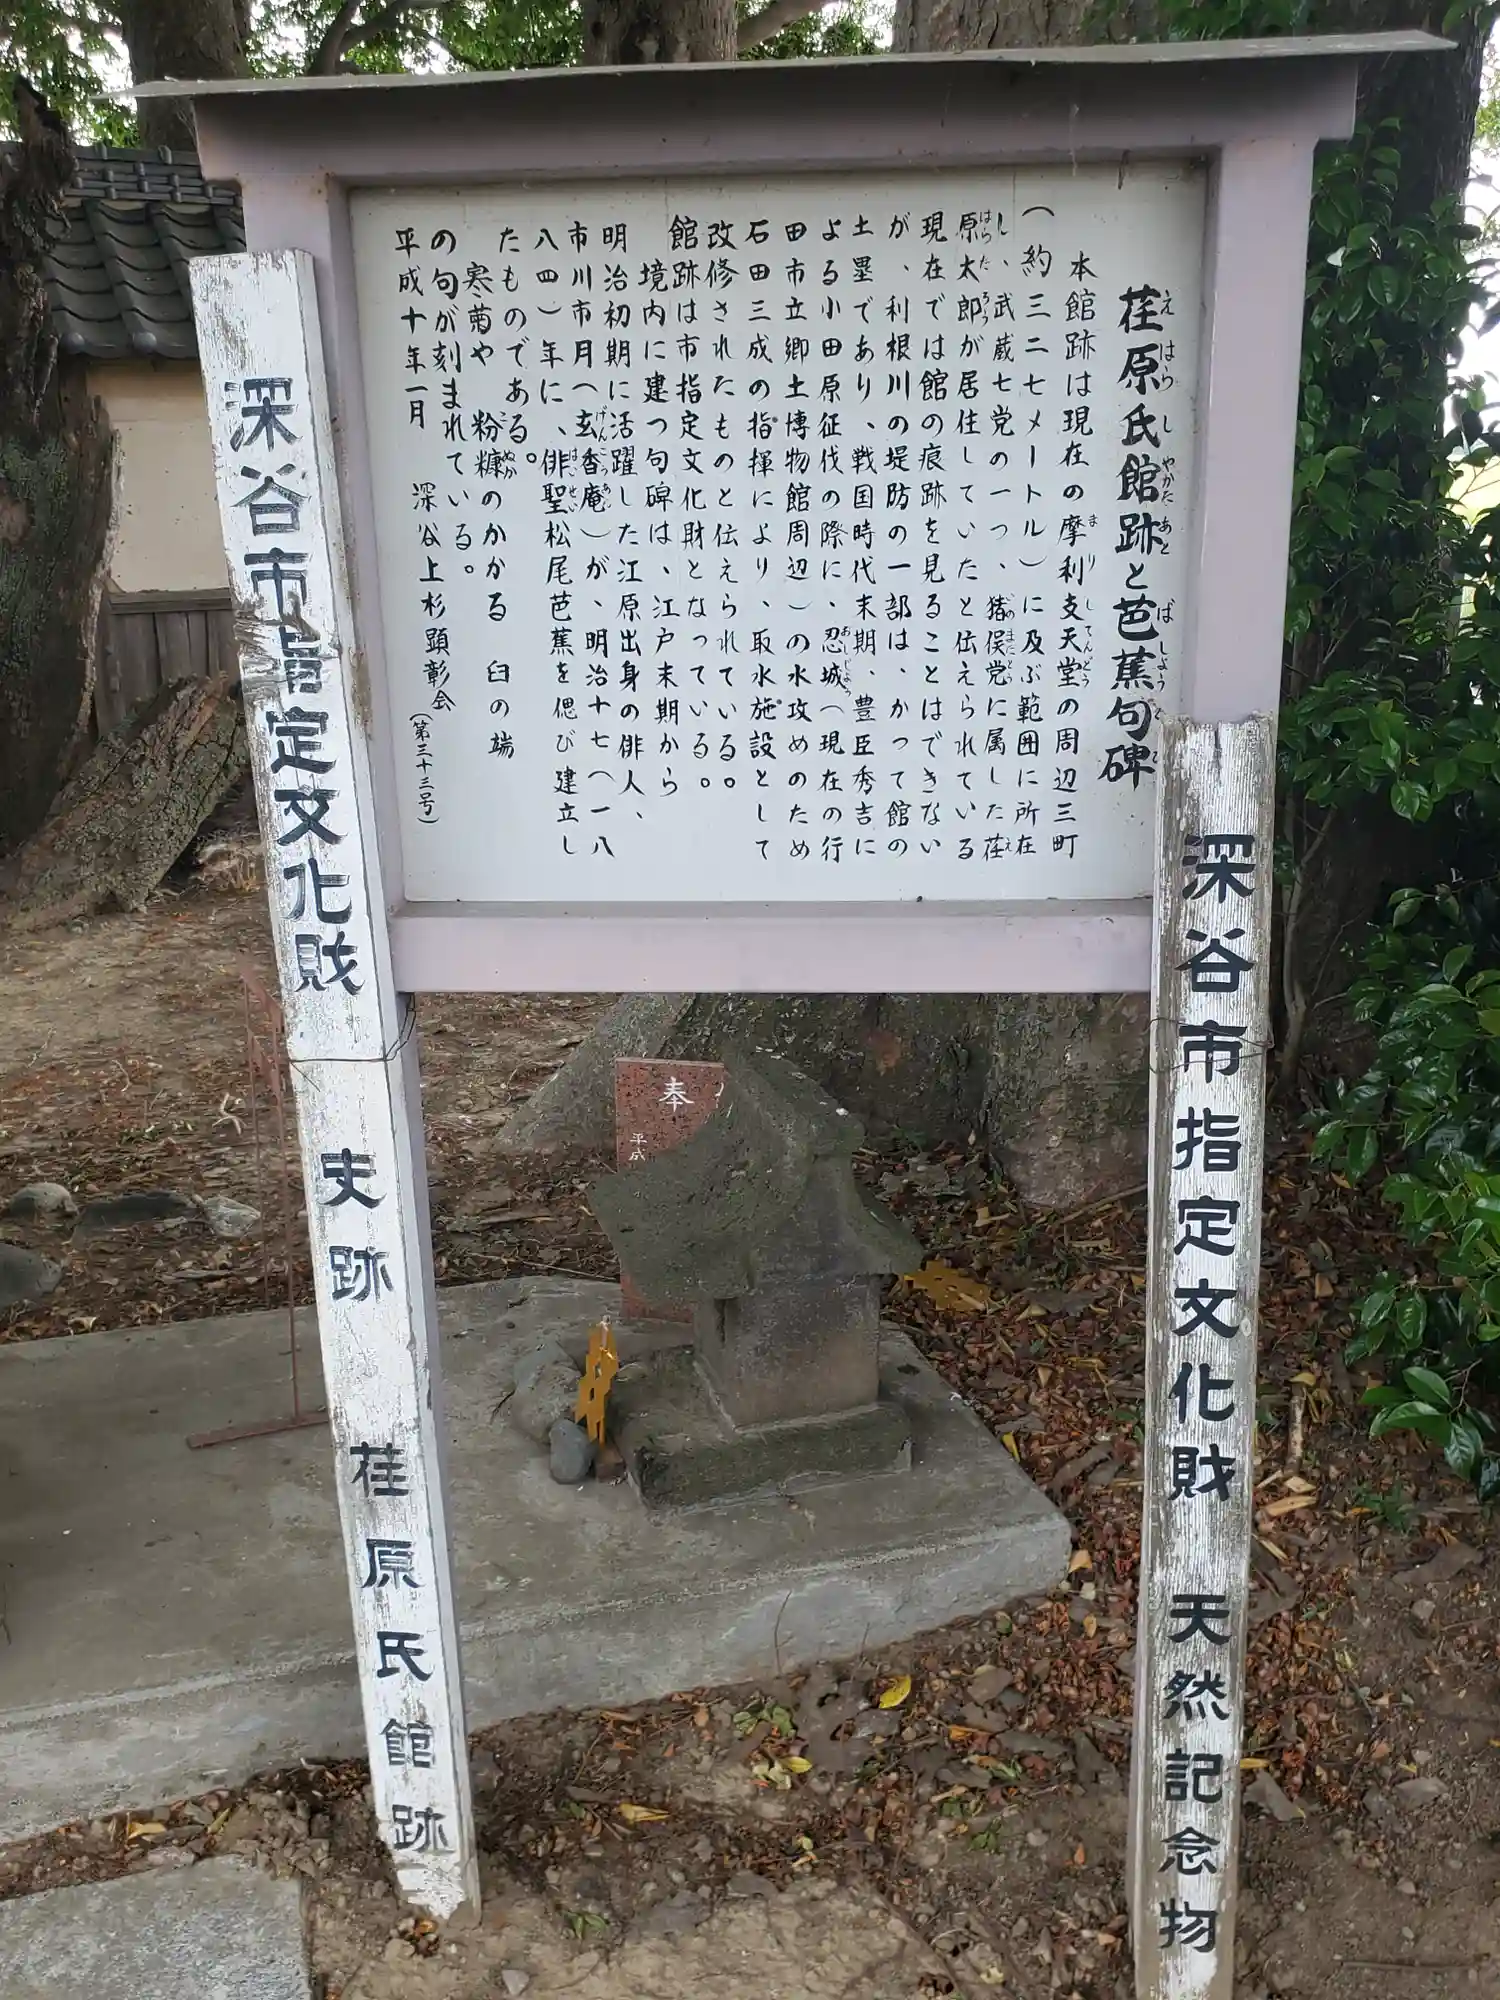 荏原氏館跡と芭蕉句碑
本館跡は現在の摩利支天堂の周辺三町
(約三二七メートル)に及ぶ範囲に所在
し、武蔵七党の一つ、猪俣党に属した荏
原太郎が居住していたと伝えられている
現在では館の痕跡を見ることはできない
が、利根川の堤防の一部は、かつて館の
土塁であり、戦国時代末期、豊臣秀吉に
よる小田原征伐の際に、忍城(現在の行
田市立郷土博物館周辺)の水攻めのため
石田三成の指揮により、取水施設として
改修されたものと伝えられている。
館跡は市指定文化財となっている。
境内に建つ句碑は、江戸末期から
明治初期に活躍した江原出身の俳人、
市川市月(玄香庵)が、明治十七(一八
八四)年に、俳聖松尾芭蕉を偲び建立し
たものである。
寒菊や 粉糠のかかる 臼の端
の句が刻まれている。
平成十年一月 深谷上杉顕彰会
(第三十三号)
深谷市指定文化財 史跡 荏原氏館跡
深谷市指定文化財 天然記念物
奉
平成